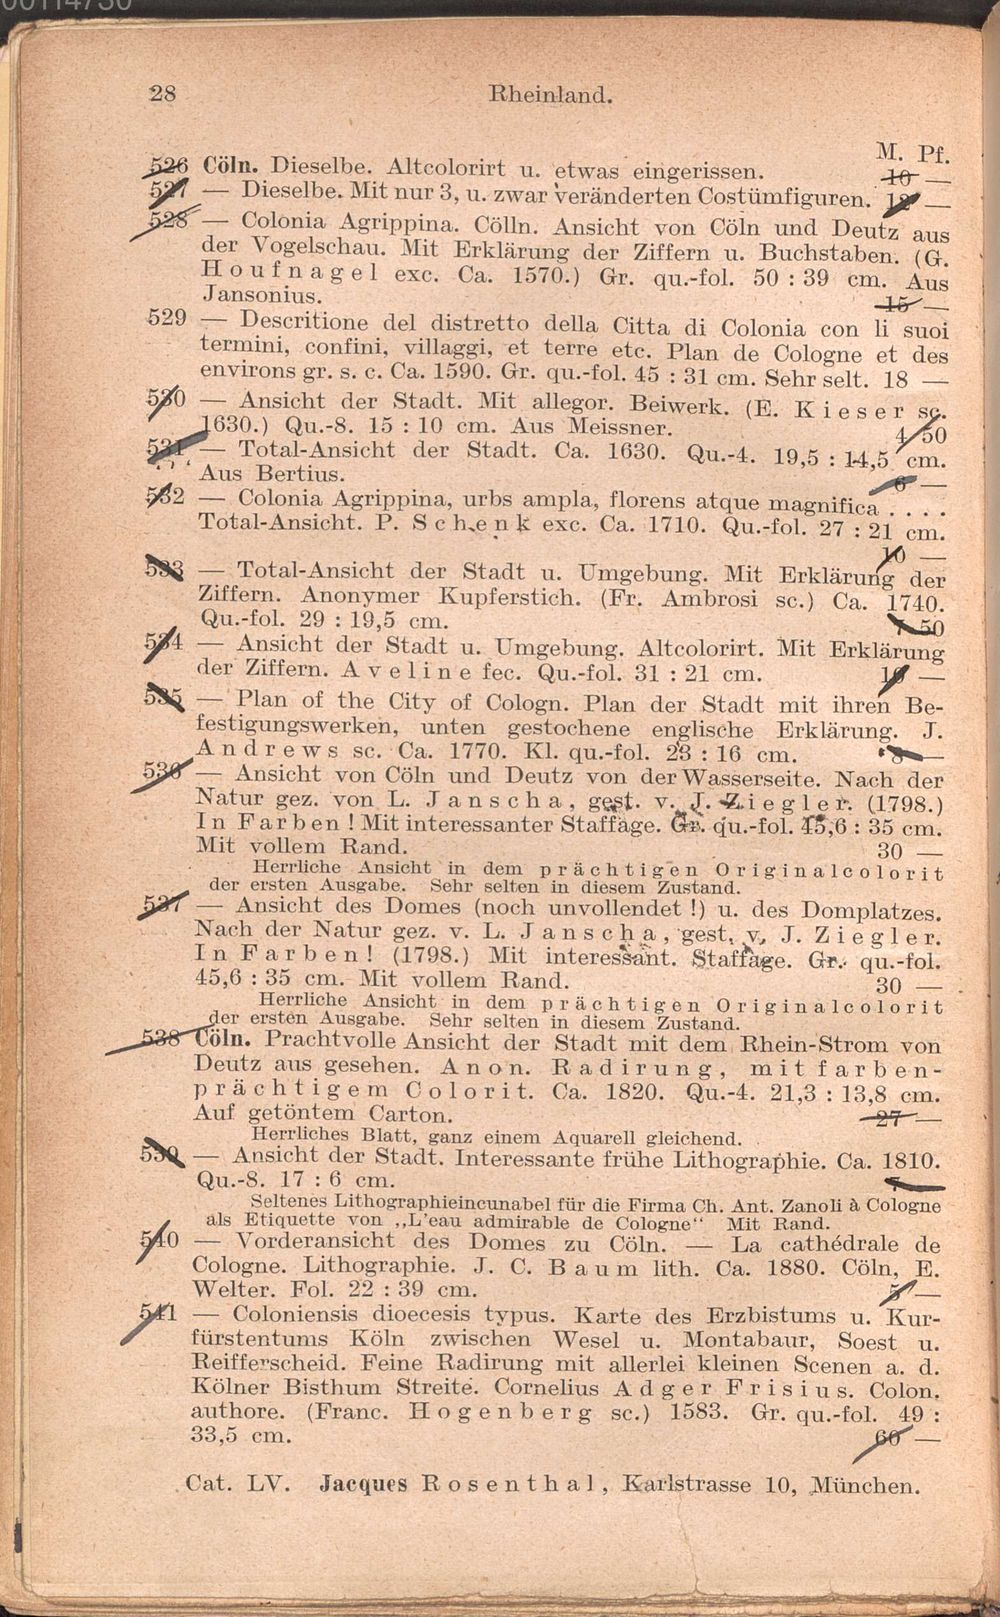 00114730
28 Rheinland.
M. Pf.
526 Cöln. Dieselbe. Altcolorirt u. etwas eingerissen. 10 —
527 — Dieselbe. Mit nur 3, u. zwar veränderten Costümfiguren. 12 —
528 — Colonia Agrippina. Cölln. Ansicht von Cöln und Deutz aus
der Vogelschau. Mit Erklärung der Ziffern u. Buchstaben. (G.
Houfnagel exc. Ca. 1570.) Gr. qu.-fol. 50 : 39 cm. Aus
Jansonius. 15 —
529 — Descritione del distretto della Citta di Colonia con li suoi
termini, confini, villaggi, et terre etc. Plan de Cologne et des
environs gr. s. c. Ca. 1590. Gr. qu.-fol. 45 : 31 cm. Sehr selt. 18 —
530 — Ansicht der Stadt. Mit allegor. Beiwerk. (E. Kieser sc.
1630.) Qu.-8. 15 : 10 cm. Aus Meissner. 4 50
531 — Total-Ansicht der Stadt. Ca. 1630. Qu.-4. 19,5 : 14,5 cm.
Aus Bertius. 6 —
532 — Colonia Agrippina, urbs ampla, florens atque magnifica . . . .
Total-Ansicht. P. Schenk exc. Ca. 1710. Qu.-fol. 27 : 21 cm.
10 —
533 — Total-Ansicht der Stadt u. Umgebung. Mit Erklärung der
Ziffern. Anonymer Kupferstich. (Fr. Ambrosi sc.) Ca. 1740.
Qu.-fol. 29 : 19,5 cm. 7 50
534 — Ansicht der Stadt u. Umgebung. Altcolorirt. Mit Erklärung
der Ziffern. Aveline fec. Qu.-fol. 31 : 21 cm. —
535 — Plan of the City of Cologn. Plan der Stadt mit ihren Be-
festigungswerken, unten gestochene englische Erklärung. J.
Andrews sc. Ca. 1770. Kl. qu.-fol. 23 : 16 cm. 8 —
536 — Ansicht von Cöln und Deutz von der Wasserseite. Nach der
Natur gez. von L. Janscha, gest. v. J. Ziegler. (1798.)
In Farben! Mit interessanter Staffage. Gr. qu.-fol. 45,6 : 35 cm.
Mit vollem Rand. 30 —
Herrliche Ansicht in dem prächtigen Originalcolorit
der ersten Ausgabe. Sehr selten in diesem Zustand.
537 — Ansicht des Domes (noch unvollendet!) u. des Domplatzes.
Nach der Natur gez. v. L. Janscha, gest. v. J. Ziegler.
In Farben! (1798.) Mit interessant. Staffage. Gr. qu.-fol.
45,6 : 35 cm. Mit vollem Rand. 30 —
Herrliche Ansicht in dem prächtigen Originalcolorit
der ersten Ausgabe. Sehr selten in diesem Zustand.
538 Cöln. Prachtvolle Ansicht der Stadt mit dem Rhein-Strom von
Deutz aus gesehen. Anon. Radirung, mit farben-
prächtigem Colorit. Ca. 1820. Qu.-4. 21,3 : 13,8 cm.
Auf getöntem Carton. 27 —
Herrliches Blatt, ganz einem Aquarell gleichend.
539 — Ansicht der Stadt. Interessante frühe Lithographie. Ca. 1810.
Qu.-8. 17 : 6 cm. 7 —
Seltenes Lithographieincunabel für die Firma Ch. Ant. Zanoli à Cologne
als Etiquette von „L'eau admirable de Cologne“ Mit Rand.
540 — Vorderansicht des Domes zu Cöln. — La cathédrale de
Cologne. Lithographie. J. C. Baum lith. Ca. 1880. Cöln, E.
Welter. Fol. 22 : 39 cm. 5 —
541 — Coloniensis dioecesis typus. Karte des Erzbistums u. Kur-
fürstentums Köln zwischen Wesel u. Montabaur, Soest u.
Reifferscheid. Feine Radirung mit allerlei kleinen Scenen a. d.
Kölner Bisthum Streite. Cornelius Adger Frisius. Colon.
authore. (Franc. Hogenberg sc.) 1583. Gr. qu.-fol. 49 :
33,5 cm. 60 —
Cat. LV. Jacques Rosenthal, Karlstrasse 10, München.